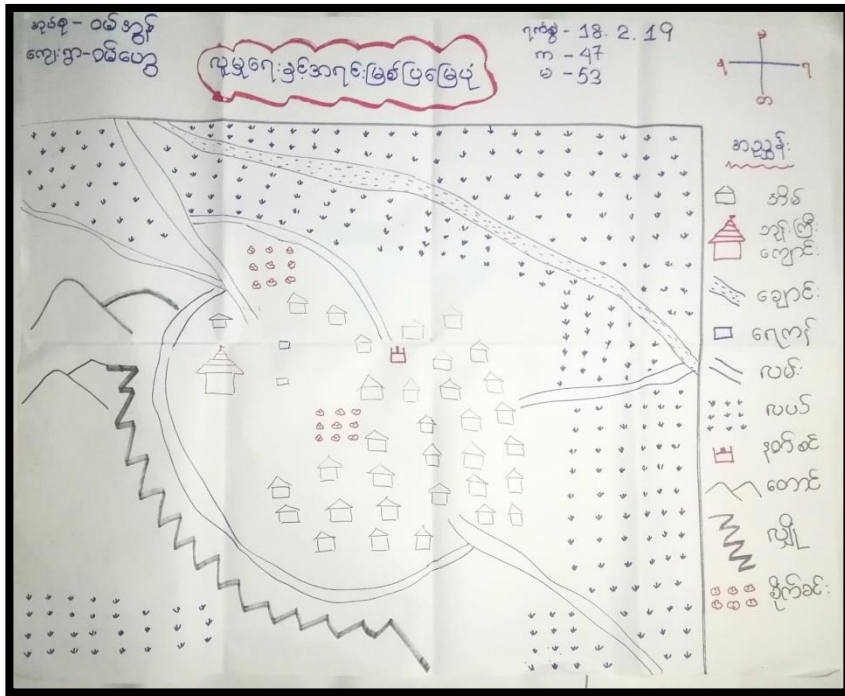 အုပ်စု - ဝမ်အွန်
ကျေးရွာ - ဝမ်ဟွေ
လူမှုရေးနှင့်အရင်းမြစ်ပြမြေပုံ
ရက်စွဲ - 18. 2. 19
ကာ - 47
မ - 53
မ
န
ရ
တ
အညွှန်း
အိမ်
ဘုန်းကြီး
ကျောင်း
ချောင်း
ရေကန်
လမ်း
လယ်
နတ်စင်
တောင်
လျှို
စိုက်ခင်း